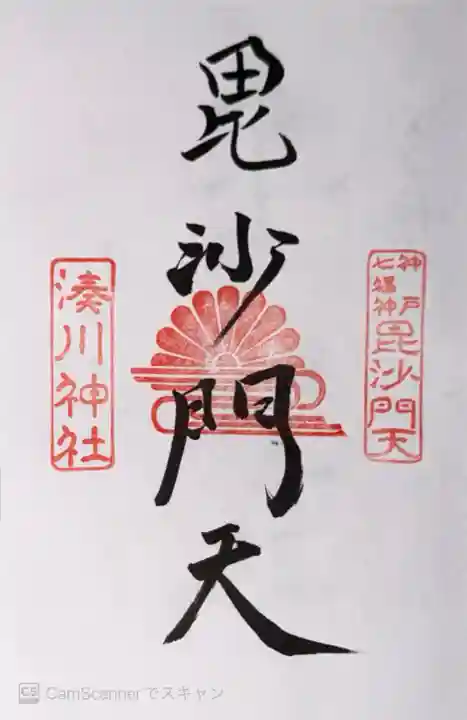 神戸
七福神
毘沙門天
毘沙門天
湊川神社
CS CamScannerでスキャン